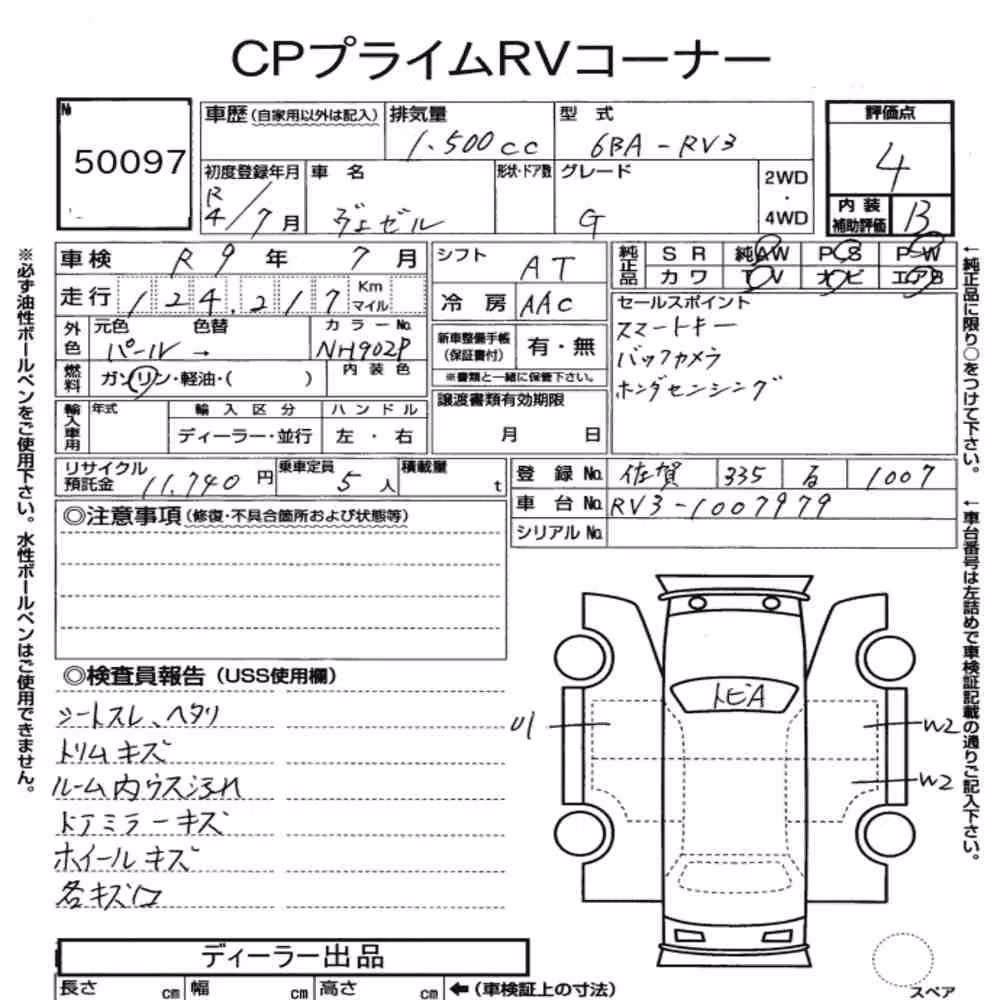 CPプライムRVコーナー
№ 50097
車歴(自家用以外は記入) 排気量 1.500cc 型式 6BA-RV3
評価点 4
内装補助評価 B
初度登録年月 R4/7月 車名 ヴェゼル 形状・ドア数 グレード G 2WD・4WD
車検 R9年7月 シフト AT
純正品 SR 純AW PS PW
カワ TV オビ エアB
走行 124,217 Km マイル 冷房 AAC
セールスポイント
スマートキー
バックカメラ
ホンダセンシング
外色 元色 パール 色替 → カラーNo. NH902P
新車整備手帳(保証書付) 有・無
※書類と一緒に保管下さい。
燃料 ガソリン・軽油・( ) 内装色
譲渡書類有効期限 月 日
輸入車用 年式 輸入区分 ハンドル
ディーラー・並行 左・右
リサイクル預託金 11,740円 乗車定員 5人 積載量 t
登録No. 佐賀 335 る 1007
車台No. RV3-1007979
シリアルNo.
◎注意事項(修復・不具合箇所および状態等)
◎検査員報告(USS使用欄)
シートスレ、ヘタリ
トリムキズ
ルーム内ウス汚れ
ドアミラーキズ
ホイールキズ
各キズ凹
トビA
U1
W2
W2
ディーラー出品
長さ cm 幅 cm 高さ cm ←(車検証上の寸法)
スペア
※必ず油性ボールペンをご使用下さい。水性ボールペンはご使用できません。
←純正品に限り○をつけて下さい。
←車台番号は左詰めで車検証記載の通りご記入下さい。